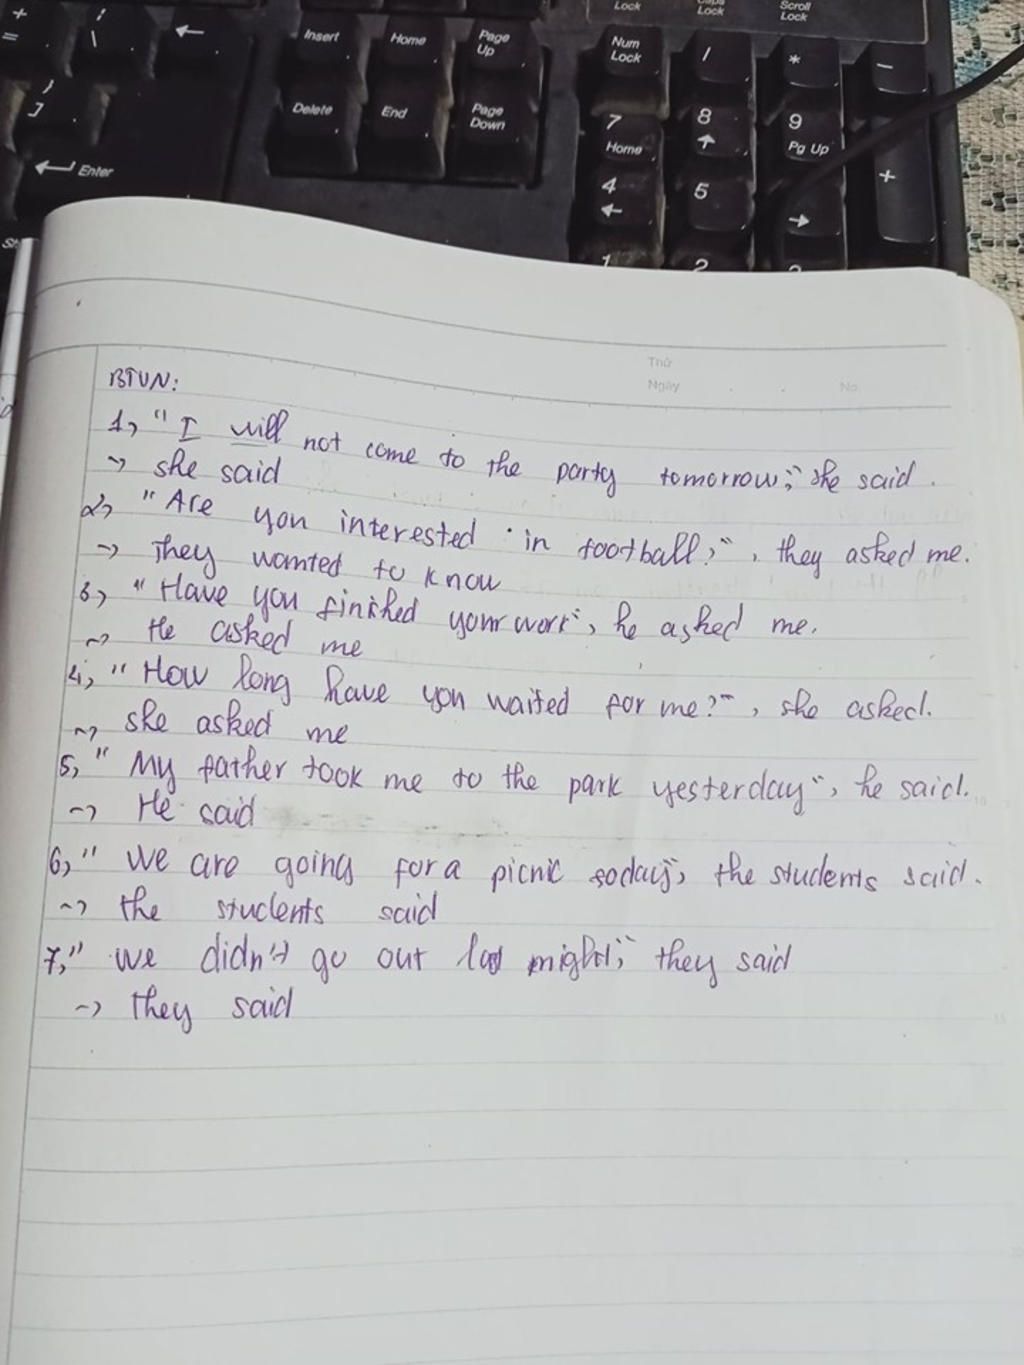 +
=
|
\
Insert
Home
Page Up
Lock
Lock
Scroll Lock
Num Lock
/
*
-
}
]
Delete
End
Page Down
7 Home
8
9 Pg Up
+
Enter
4
5
1
2
Thứ
Ngày . . No.
BTVN:
1, " I will not come to the party tomorrow," she said.
-> she said
2, "Are you interested in football?", they asked me.
-> They wanted to know
3, "Have you finished your work", he asked me.
-> He asked me
4, "How long have you waited for me?", she asked.
-> she asked me
5, "My father took me to the park yesterday", he said.
-> He said
6, " We are going for a picnic today", the students said.
-> the students said
7," we didn't go out night," they said
-> they said